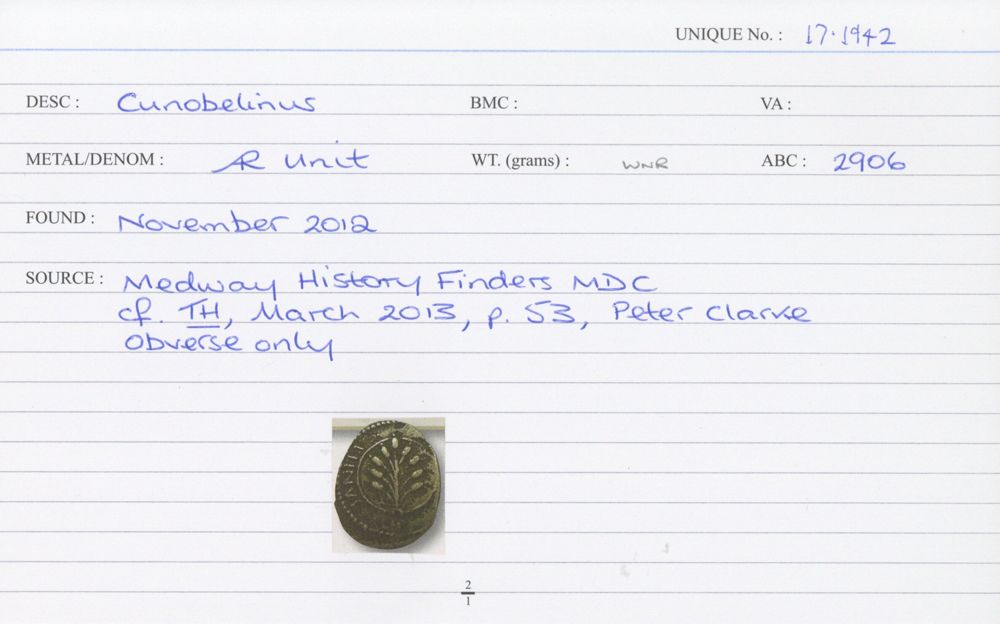 UNIQUE No. : 17·1942
DESC : Cunobelinus BMC : VA :
METAL/DENOM : AR Unit WT. (grams) : WNR ABC : 2906
FOUND : November 2012
SOURCE : Medway History Finders MDC
cf. TH, March 2013, p. 53, Peter Clarke
Obverse only
2
1